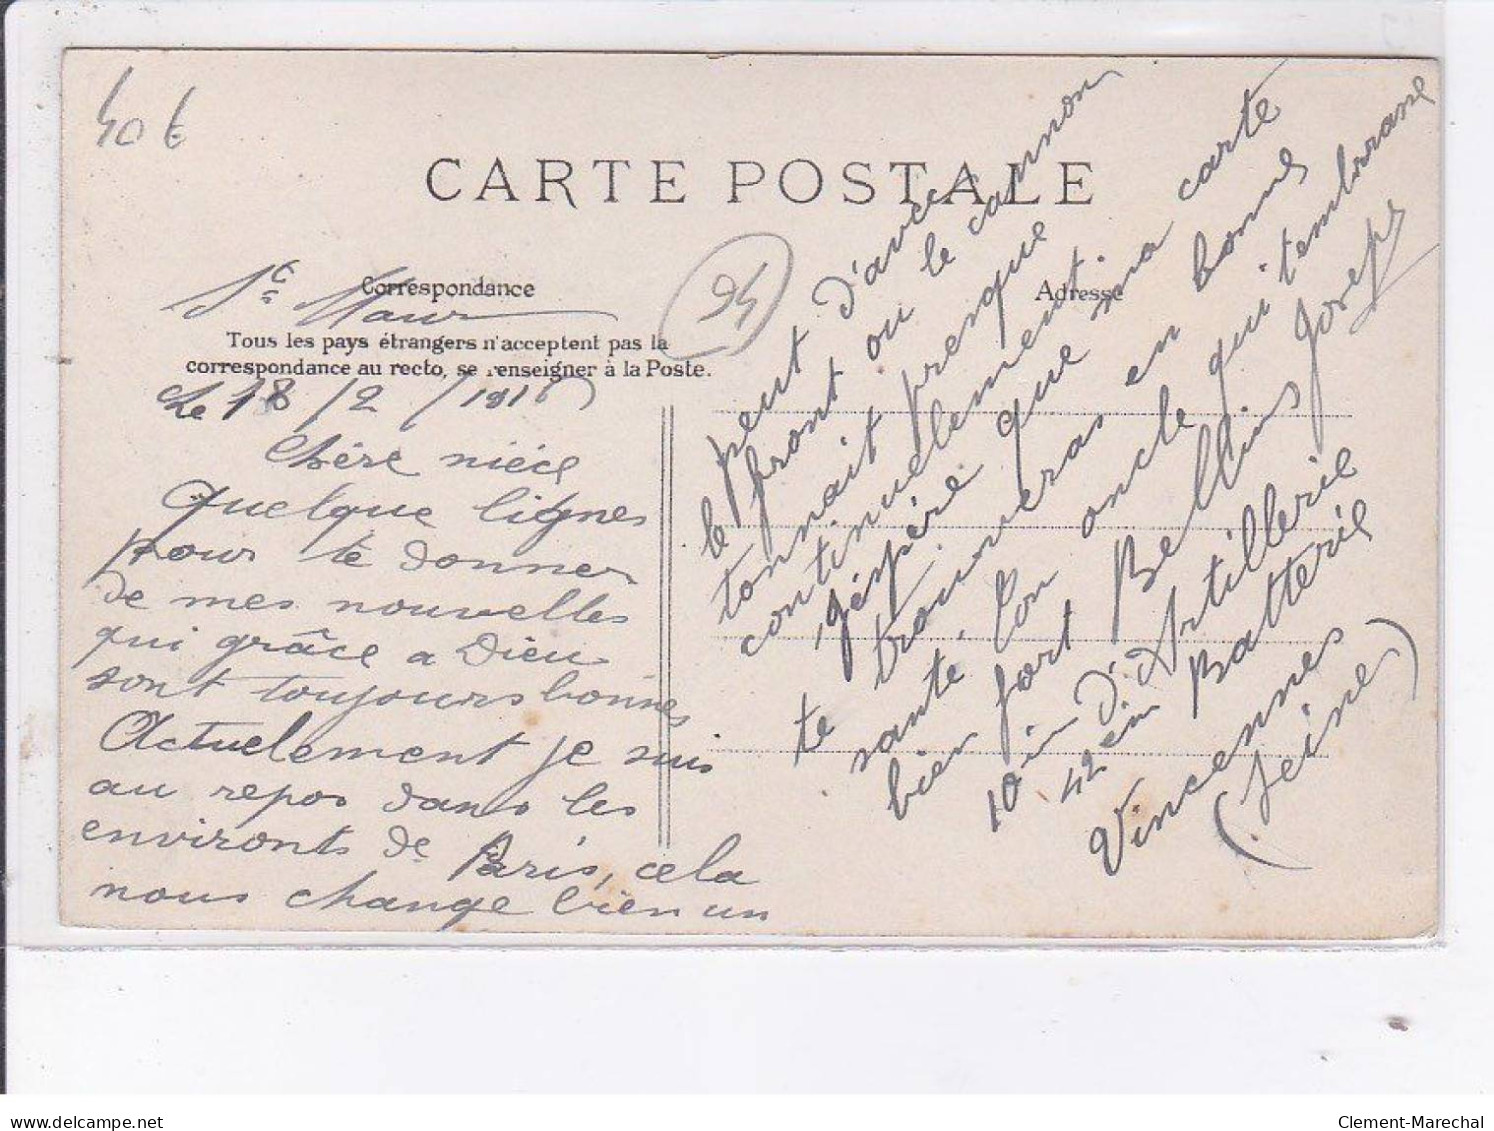 40€
CARTE POSTALE
94
Correspondance
Adresse
St Maur
Tous les pays étrangers n'acceptent pas la
correspondance au recto, se renseigner à la Poste.
Le 18/2/1916
Chère nièce
Quelque lignes
pour te donner
de mes nouvelles
qui grâce a Dieu
sont toujours bonnes
Actuelement je suis
au repos dans les
environts de Paris, cela
nous change bien un
peut d'avec
le front ou le cannon
tonnait presque
continuelement.
j'éspère que ma carte
te trouveras en bonne
santé. Ton oncle qui t'embrrasse
bien fort Bellins Joseph
10 ièm D'Artillerie
42 èm Batterie
Vincennes
(Seine)
delcampe.net
Clement-Marechal